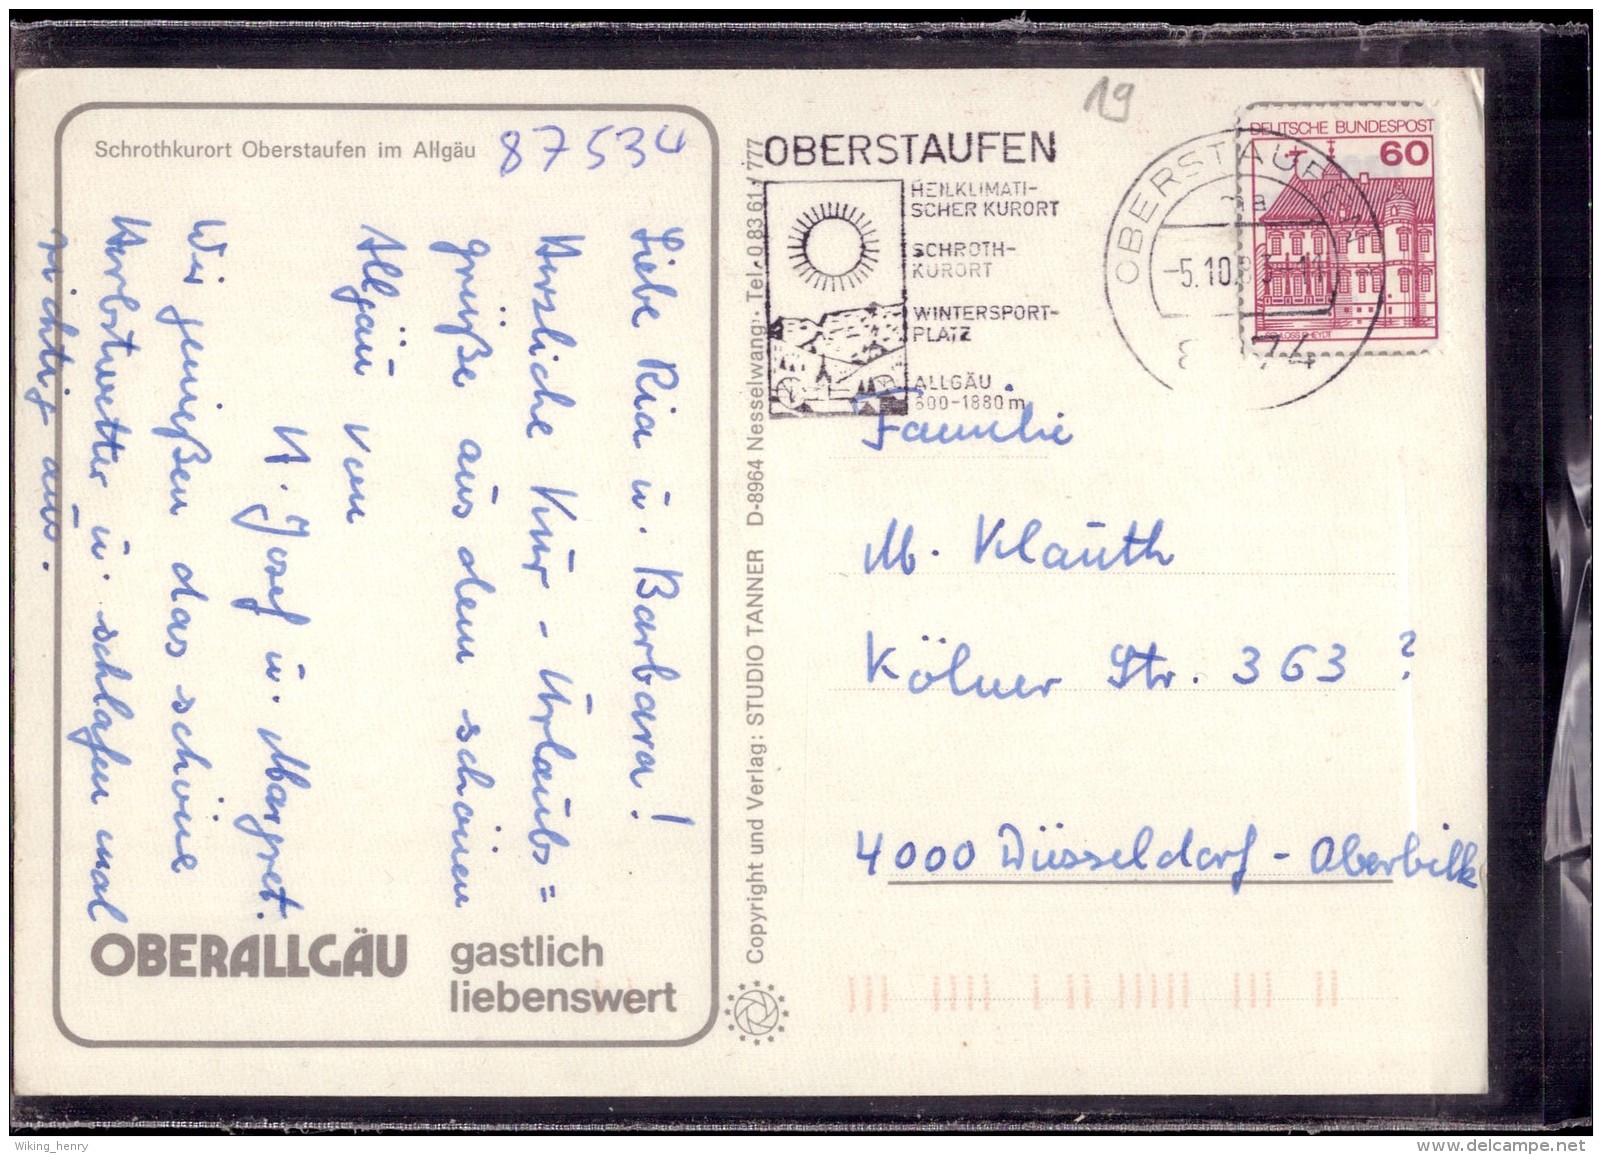 Schrothkurort Oberstaufen im Allgäu
87534
Liebe Ria u. Barbara!
Herzliche Kur - Urlaubs=
grüße aus dem schönen
Allgäu von
M. Josef u. Margret.
Wir genießen das schöne
Herbstwetter u. schlafen mal
richtig aus.
OBERALLGÄU
gastlich
liebenswert
Copyright und Verlag: STUDIO TANNER D-8964 Nesselwang · Tel. 0 83 61 / 777
OBERSTAUFEN
HEILKLIMATI-
SCHER KURORT
SCHROTH-
KURORT
WINTERSPORT-
PLATZ
ALLGÄU
800-1880 m
19
OBERSTAUFEN
-5.10.83-11
DEUTSCHE BUNDESPOST
60
Familie
M. Klauth
Kölner Str. 363 ?
4000 Düsseldorf - Oberbilk
Wiking_henry
www.delcampe.net